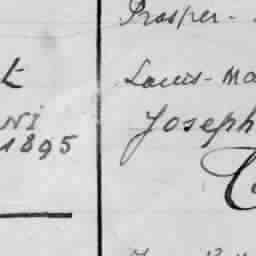 Prosper -
Louis - Ma
Joseph
t
NS
1895